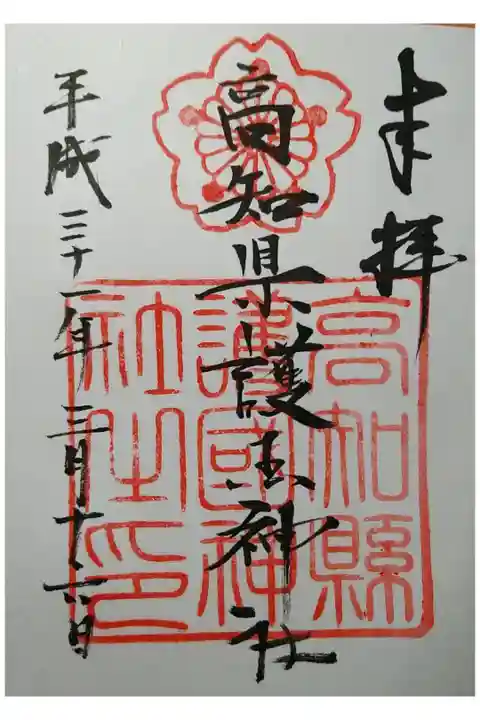 奉拝
高知県護国神社
高知縣
護國神
社之印
平成三十一年三月十六日